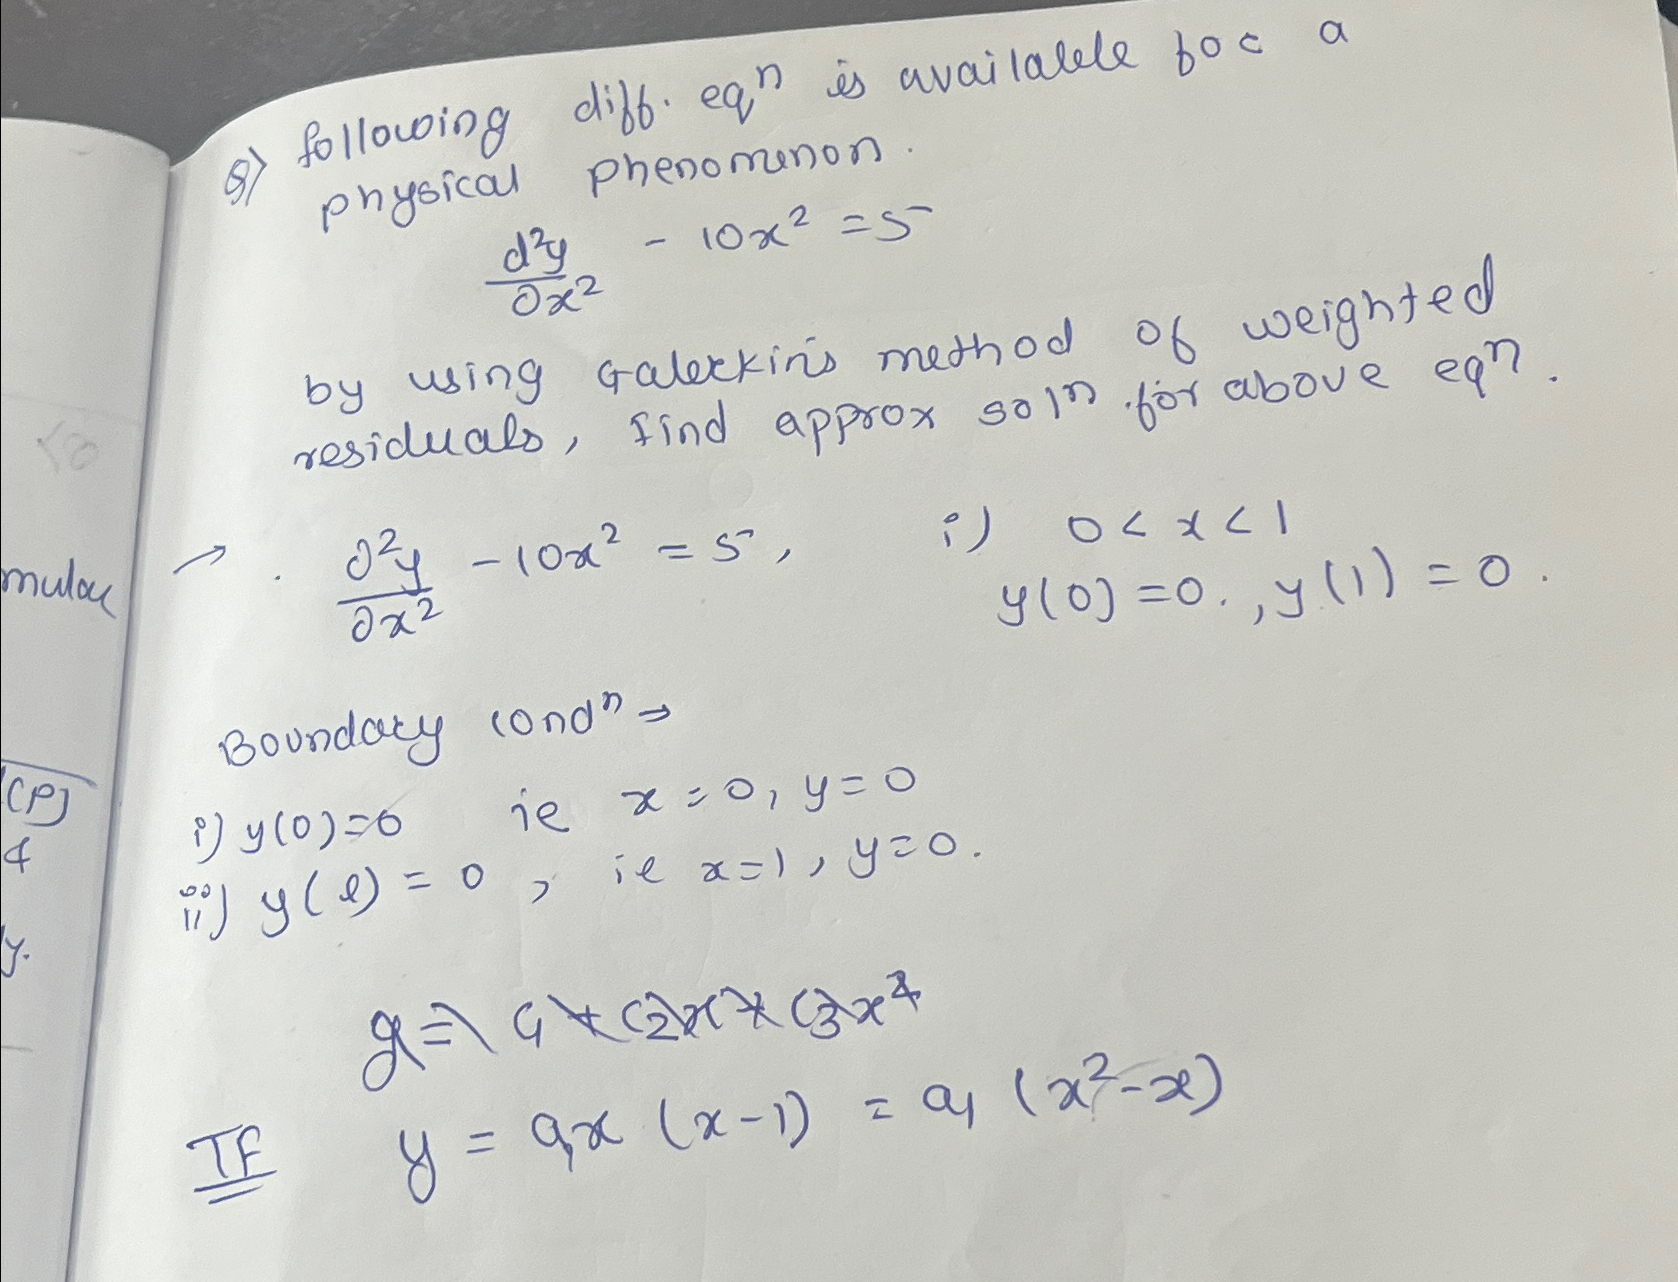 Q) following diff. eqⁿ is available for a
physical phenomenon.
d²y/∂x² - 10x² = 5
by using Galerkin's method of weighted
residuals, find approx solⁿ for above eqⁿ.
→ . ∂²y/∂x² - 10x² = 5, i) 0 < x < 1
y(0) = 0. , y(1) = 0 .
Boundary condⁿ →
i) y(0)=0 ie x = 0, y = 0
ii) y(l) = 0 , ie x=1, y=0.
TF y = a₁x (x-1) = a₁ (x²-x)
mular
(P)
y.